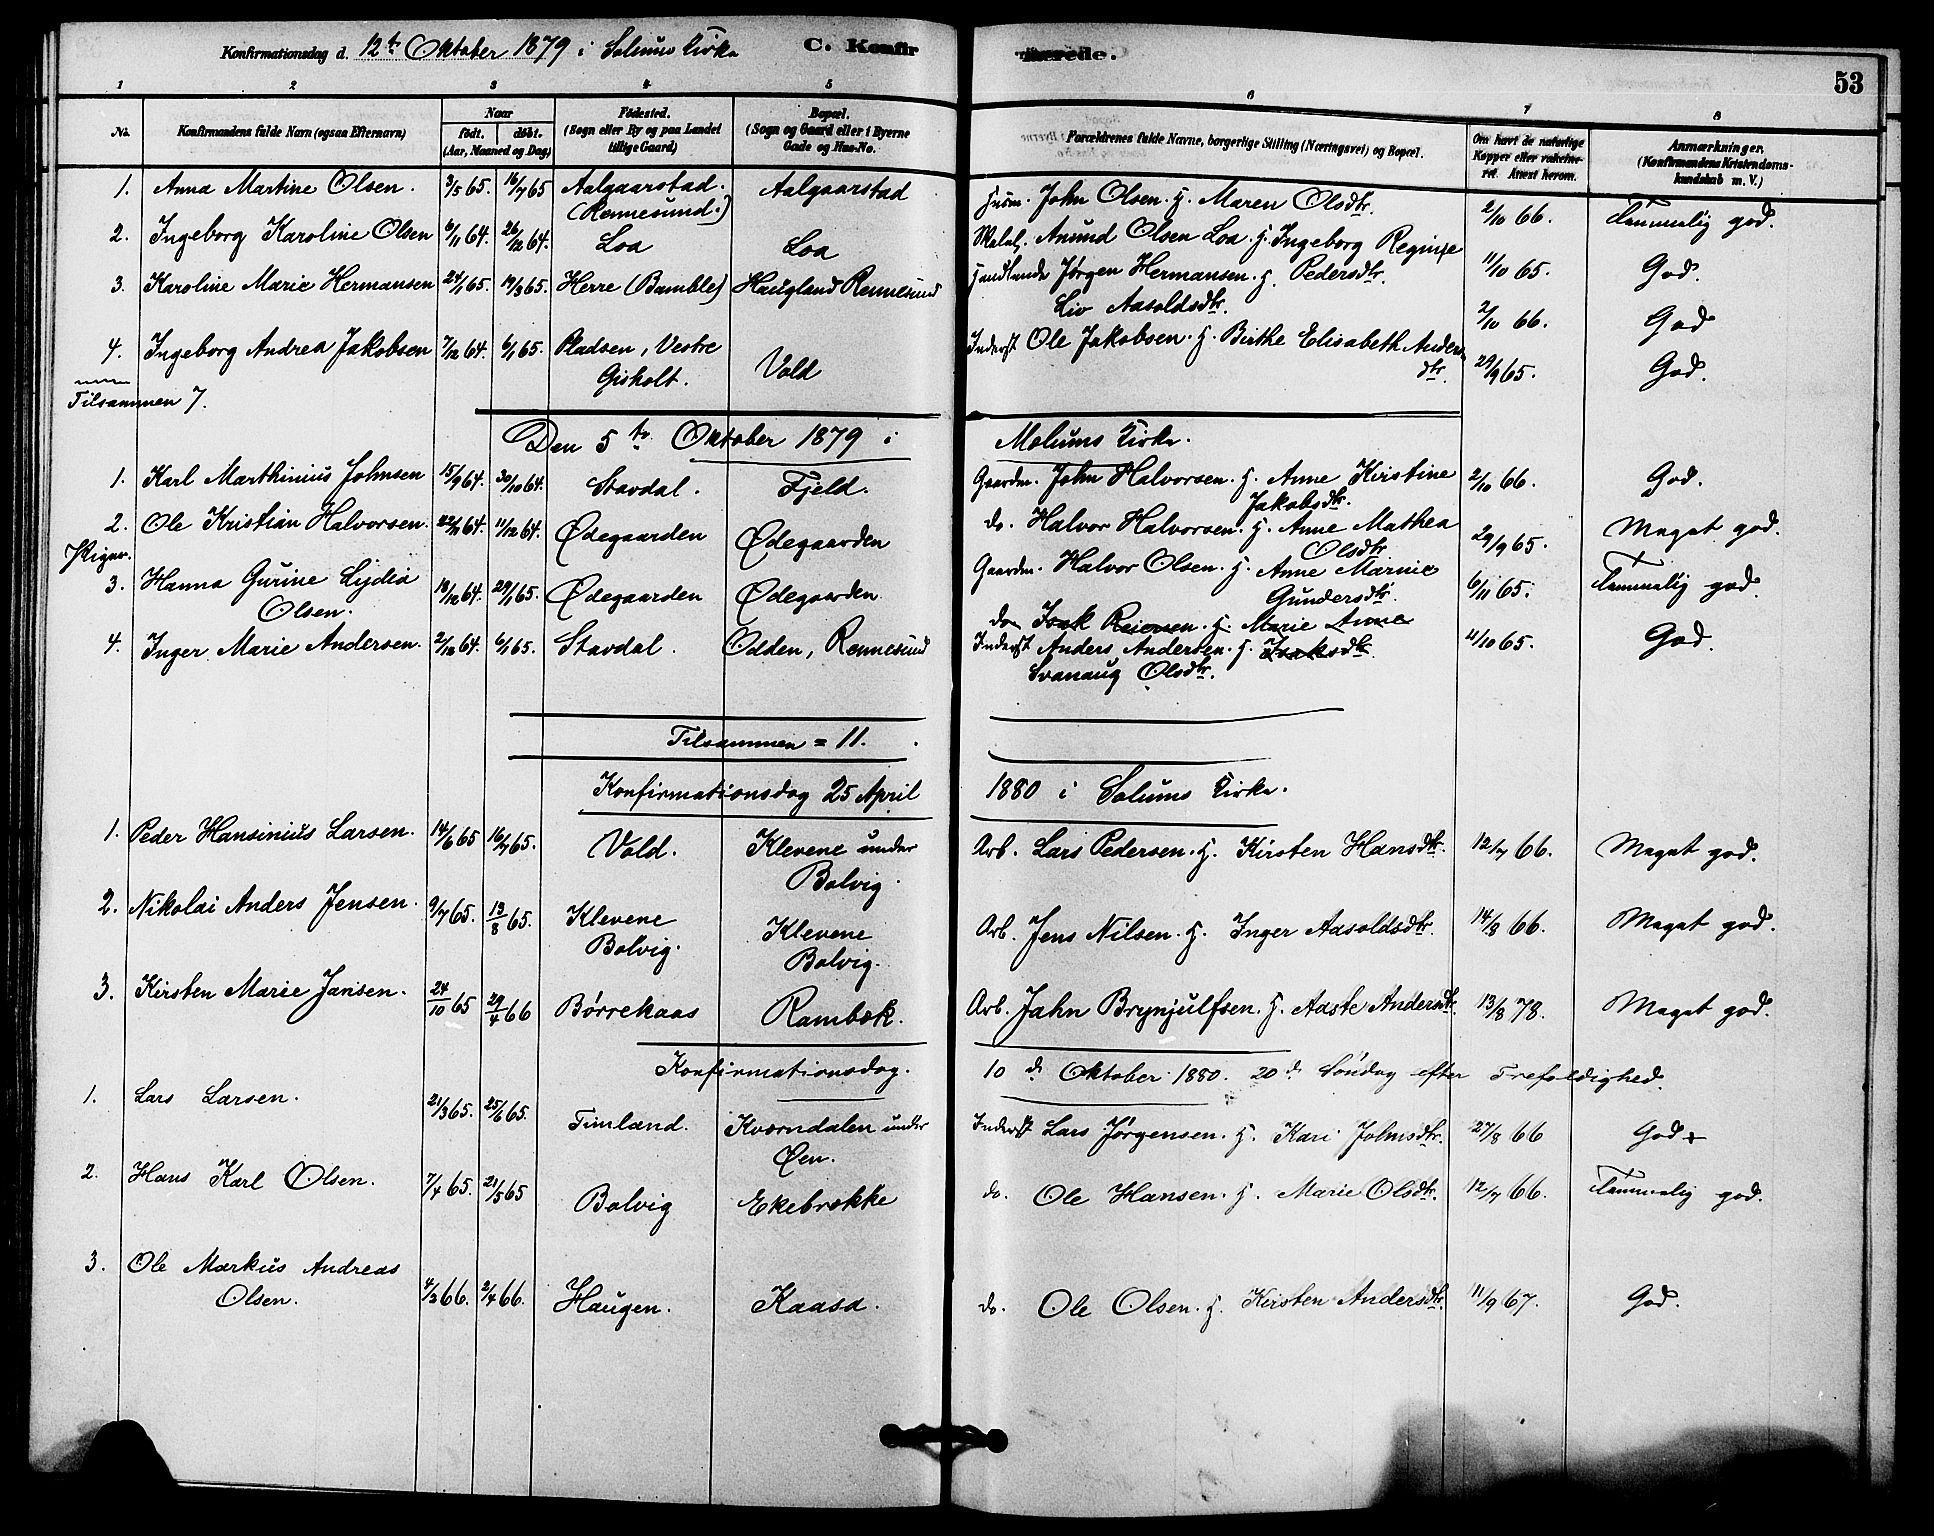 Konfirmationsdag d. 12te Oktober 1879 i Solums Kirke C. Konfirmerede. 53
1 2 3 4 5 6 7 8
No. Konfirmandens fulde Navn (ogsaa Efternavn) Naar födt. döbt. (Aar, Maaned og Dag) Födested. (Sogn eller By og paa Landet tillige Gaard) Bopæl. (Sogn og Gaard eller i Byerne Gade og Hus-No. Forældrenes fulde Navne, borgerlige Stilling (Næringsvei) og Bopæl. Om havt de naturlige Kopper eller vakcineret. Attest herom. Anmærkninger. (Konfirmandens Kristendomskundskab m. V.)
1. Anna Martine Olsen. 3/5 65. 16/7 65 Aalgaarstad. (Rennesund.) Aalgaarstad Husm. John Olsen. H. Maren Olsdtr. 2/10 66. Temmelig god.
2. Ingeborg Karoline Olsen 6/11 64. 26/12 64. Loa Loa Anund Olsen Loa. H. Ingeborg Regine Pedersdtr. 11/10 65. God.
3. Karoline Marie Hermansen 24/1 65. 19/3 65. Herre (Bamble) Haugland Rennesund Handlende Jørgen Hermansen. H. Liv Aasoldsdtr. 2/10 66. God
4. Ingeborg Andrea Jakobsen 7/12 64. 6/1 65. Pladsen, Vestre Gisholt. Vold Inderst Ole Jakobsen. H. Birthe Elisabeth Andersdtr. 29/9 65. God.
Tilsammen 7.
Den 5te Oktober 1879 i Melums Kirke.
1. Karl Marthinius Johnsen 15/9 64. 30/10 64. Stavdal. Fjeld. Gaardm. John Halvorsen. H. Anne Kirstine Jakobsdtr. 2/10 66. God.
2. Ole Kristian Halvorsen. 22/11 64. 11/12 64. Ødegaarden Ødegaarden do. Halvor Halvorsen. H. Anne Mathea Olsdtr. 29/9 65. Meget god.
Piger.
3. Hanna Gurine Lydia Olsen. 18/12 64. 29/1 65. Ødegaarden Ødegaarden Gaardm. Halvor Olsen. H. Anne Marnie Gundersdtr. 6/11 65. Temmelig god.
do Isak Reiersen. H. Marie Anne Isaksdtr.
4. Inger Marie Andersen. 2/12 64. 6/1 65. Stavdal. Odden, Rennesund Inderst Anders Andersen. H. Svanaug Olsdtr. 11/10 65. God.
Tilsammen = 11.
Konfirmationsdag 25 April 1880 i Solums Kirke.
1. Peder Hansinius Larsen. 14/6 65 16/7 65. Vold. Klevene under Bolvig. Arb. Lars Pedersen. H. Kirsten Hansdtr. 12/7 66. Meget god.
2. Nikolai Anders Jensen. 9/7 65. 13/8 65. Klevene Bolvig. Klevene Bolvig. Arb. Jens Nilsen. H. Inger Aasoldsdtr. 14/8 66. Meget god.
3. Kirsten Marie Jansen. 24/10 65 29/4 66 Børrekaas Rambæk. Arb. Jahn Brynjulfsen. H. Aaste Andersdtr. 13/8 78. Meget god.
Konfirmationsdag. 10de Oktober 1880. 20de Søndag efter Trefoldighed.
1. Lars Larsen. 21/3 65. 25/6 65. Timland. Kværndalen under Øen. Inderst Lars Jørgensen. H. Kari Johnsdtr. 27/8 66 God
2. Hans Karl Olsen. 7/4 65. 21/5 65 Bolvig Ekebrække do. Ole Hansen. H. Marie Olsdtr. 12/7 66. Temmelig god.
3. Ole Markus Andreas Olsen. 4/3 66. 2/4 66. Haugen. Kaasa. do. Ole Olsen. H. Kirsten Andersdtr. 11/9 67. God.